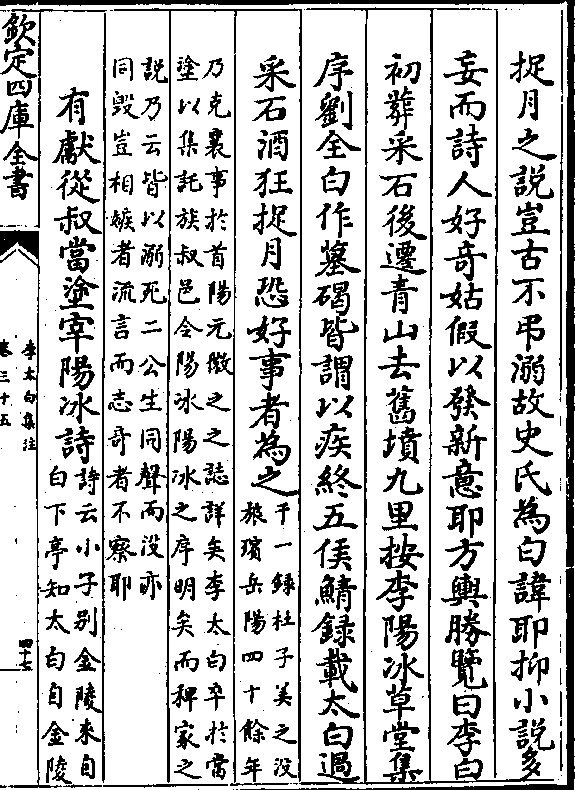 捉月之說豈古不弔溺故史氏為白諱耶抑小說多
妄而詩人好奇姑假以發新意耶方輿勝覽曰李白
初葬采石後遷青山去舊墳九里按李陽冰草堂集
序劉全白作墓碣皆謂以疾終五侯鯖錄載太白過
采石酒狂捉月恐好事者為之
于一錄杜子美之沒
旅殯岳陽四十餘年
乃克襄事於首陽元微之之誌詳矣李太白卒於當
塗以集託族叔邑令陽冰陽冰之序明矣而稗家之
說乃云皆以溺死二公生同聲而沒亦
同毀豈相嫉者流言而志奇者不察耶
有獻從叔當塗宰陽冰詩
詩云小子别金陵來自
白下亭知太白自金陵
欽定四庫全書
李太白集注
卷三十五
四十七